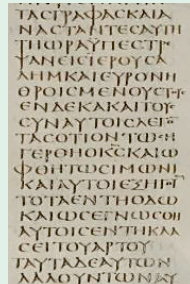 ΤΑϹΓΡΑΦΑϹΚΑΙΑ
ΝΑϹΤΑΝΤΕϹΑΥΤΗ
ΤΗΩΡΑΥΠΕϹΤΡΕ
ΨΑΝΕΙϹΙΕΡΟΥϹΑ
ΛΗΜΚΑΙΕΥΡΟΝΗ
ΘΡΟΙϹΜΕΝΟΥϹ
ΕΝΔΕΚΑΚΑΙΤΟΥϹ
ϹΥΝΑΥΤΟΙϹΛΕΓΟ
ΤΑϹΟΤΙΟΝΤΩϹΗ
ΓΕΡΘΗΟΚϹΚΑΙΩ
ΦΘΗΤΩϹΙΜΩΝΙ
ΚΑΙΑΥΤΟΙΕΞΗΓΟΥ
ΤΟΤΑΕΝΤΗΟΔΩ
ΚΑΙΩϹΕΓΝΩϹΘΗ
ΑΥΤΟΙϹΕΝΤΗΚΛΑ
ϹΕΙΤΟΥΑΡΤΟΥ
ΤΑΥΤΑΔΕΑΥΤΩΝ
ΛΑΛΟΥΝΤΩΝΑΥ